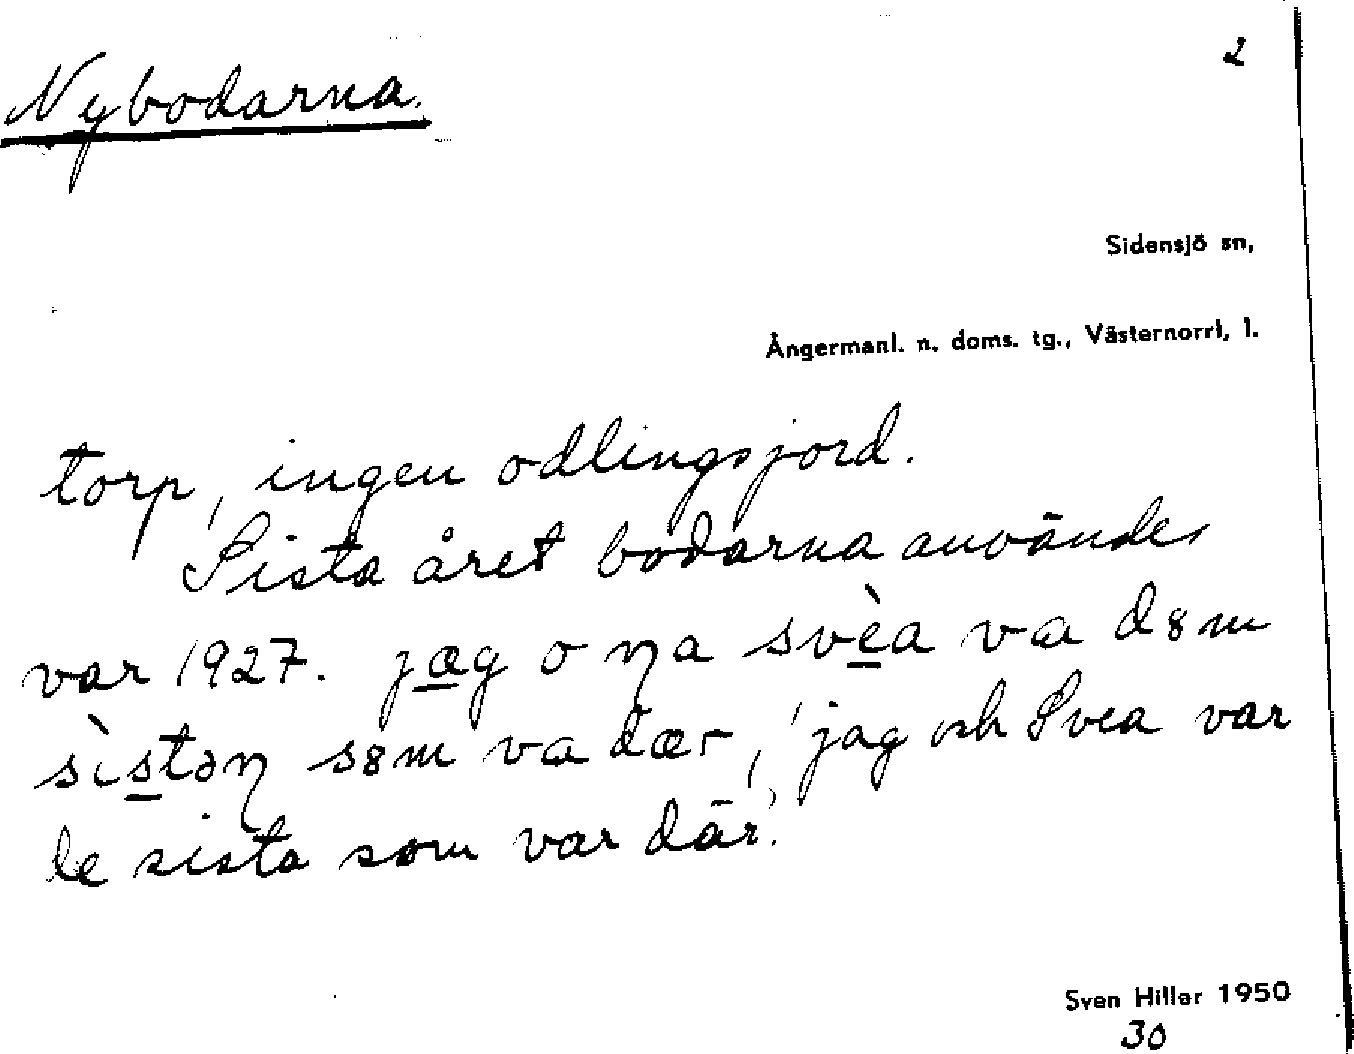 2
Nybodarna.
Sidensjö sn,
Ångermanl. n. doms. tg., Västernorrl. l.
torp, ingen odlingsjord.
Sista året bodarna användes
var 1927. jæg o ŋa svèa va d8m
sìstəŋ s8m va dær, 'jag och Svea var
de sista som var där.'
Sven Hillar 1950
30